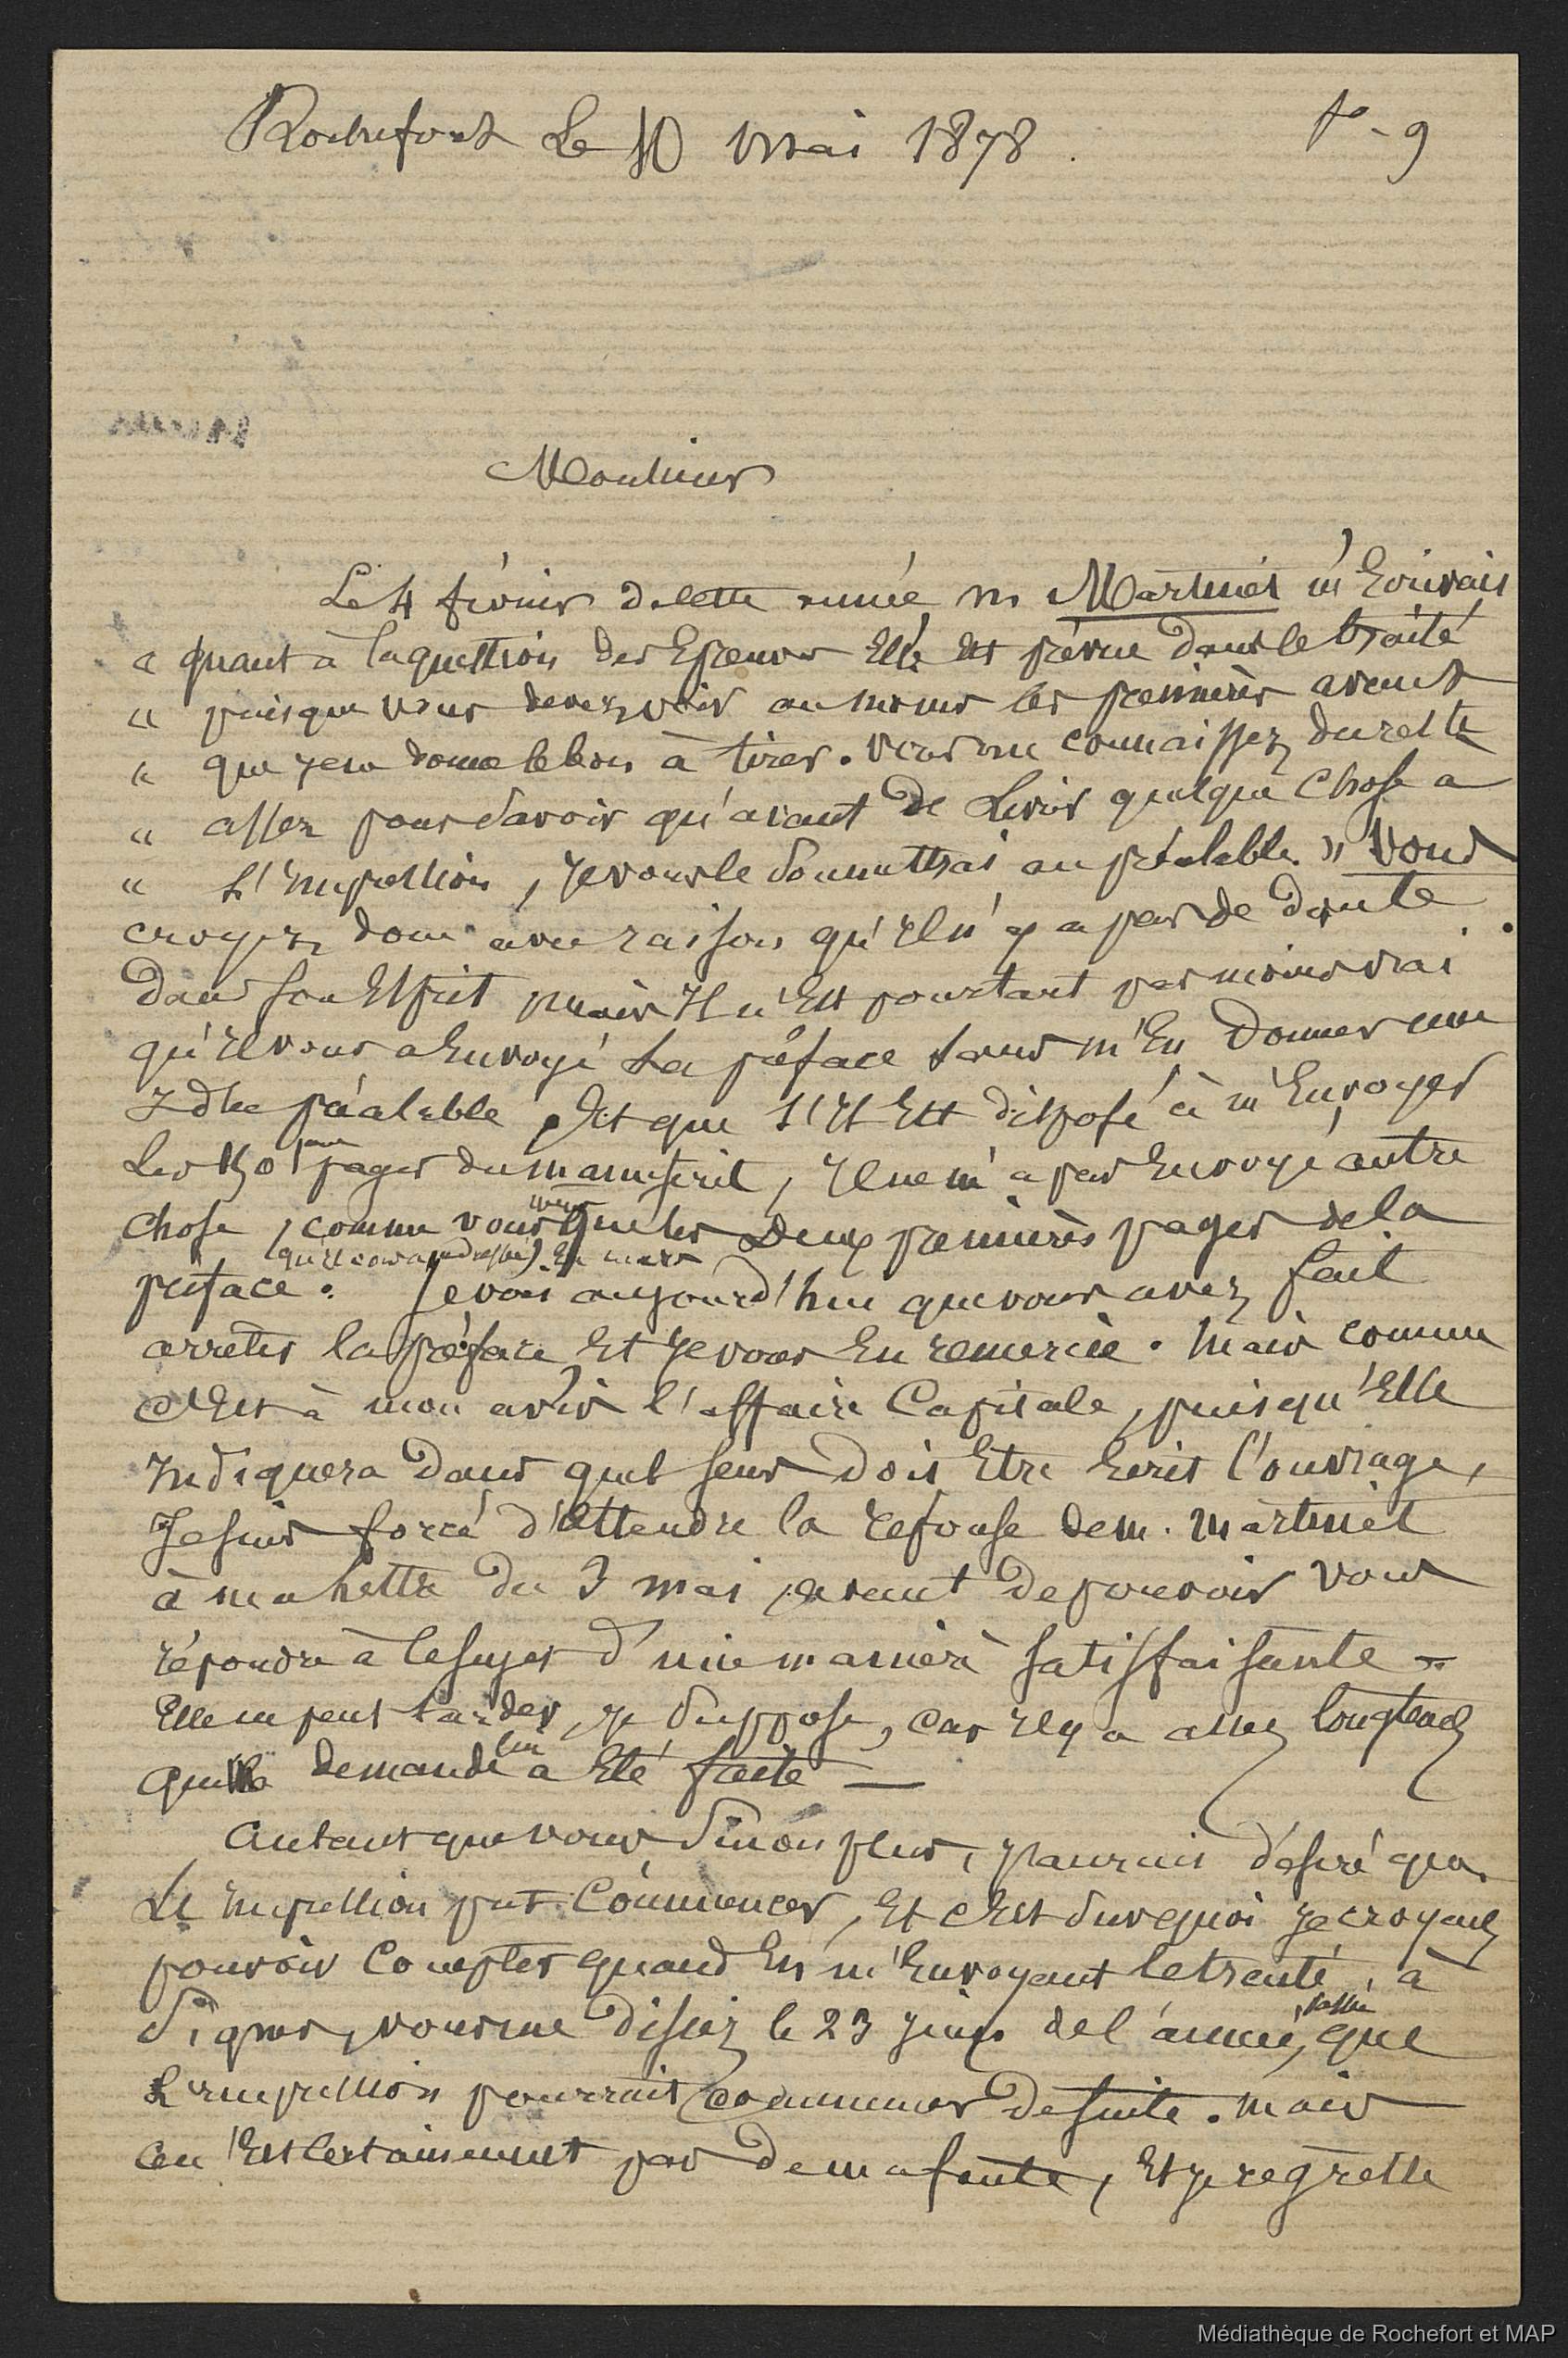 Rochefort Le 10 mai 1878. f° - 9
Monsieur
Le 4 février de cette année M. Martinet m'Ecrivais
« quant à la question des Epreuves Elle est prévue dans le traité
« puisque vous devez voir au moins les premières avant
« que j'en donne le bon à tirer. Vous me connaissez du reste
« assez pour savoir qu'avant de Livrer quelque chose a
« L'Impression, je vous le soumettrai au préalable. » Vous
croyez donc avec raison qu'Il n'y a pas de doute
dans son Esprit mais Il n'Est pourtant pas moins vrai
qu'Il vous a Envoyé La préface sans m'En donner une
Idée préalable, Et que s'Il Est disposé à m'Envoyer
Les 150 pages du manuscrit, Il ne m'a pas Envoyé autre
chose, comme vous que les Deux premières pages de la
(qu'Il vous a adressée). En mars
préface. Je vois aujourd'hui que vous avez fait
arrêter la préface Et je vous En remercie. Mais comme
c'Est à mon avis l'affaire Capitale, puisqu'Elle
Indiquera dans quel sens doit Etre Ecrit l'ouvrage,
Je suis forcé d'attendre la réponse de M. Martinet
à ma Lettre du 3 mai, avant de pouvoir vous
répondre à ce sujet d'une manière satisfaisante =
Elle ne peut tarder, je suppose, car Il y a assez longtemps
que la demande lui a Eté faite —
Autant que vous sinon plus, j'aurais désiré que
L'Impression put Commencer, Et c'Est sur quoi je croyais
pouvoir Compter quand En m'Envoyant le traité, à
signer, vous me disiez le 23 juin de l'année, passée que
L'impression pourrait commencer de suite. Mais
ce n'Est certainement pas de ma faute, Et je regrette
Médiathèque de Rochefort et MAP